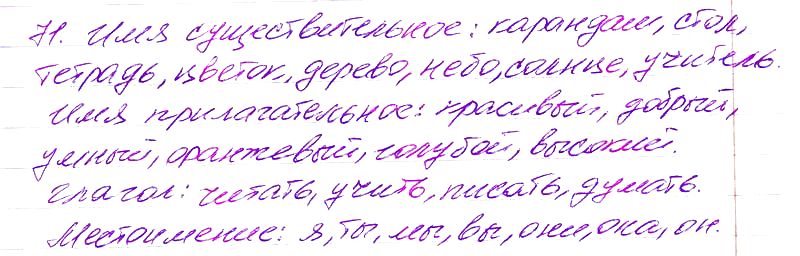 71. Имя существительное: карандаш, стол,
тетрадь, цветок, дерево, небо, солнце, учитель.
Имя прилагательное: красивый, добрый,
умный, оранжевый, голубой, высокий.
Глагол: читать, учить, писать, думать.
Местоимение: я, ты, мы, вы, они, она, он.